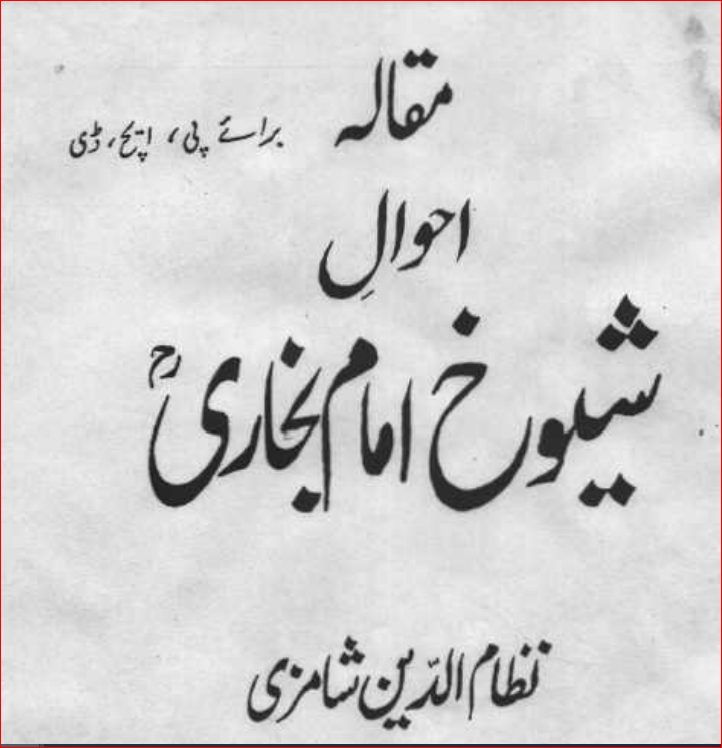 مقالہ برائے پی، ایچ، ڈی
احوالِ
شیوخ امام بخاریؒ
نظام الدّین شامزی